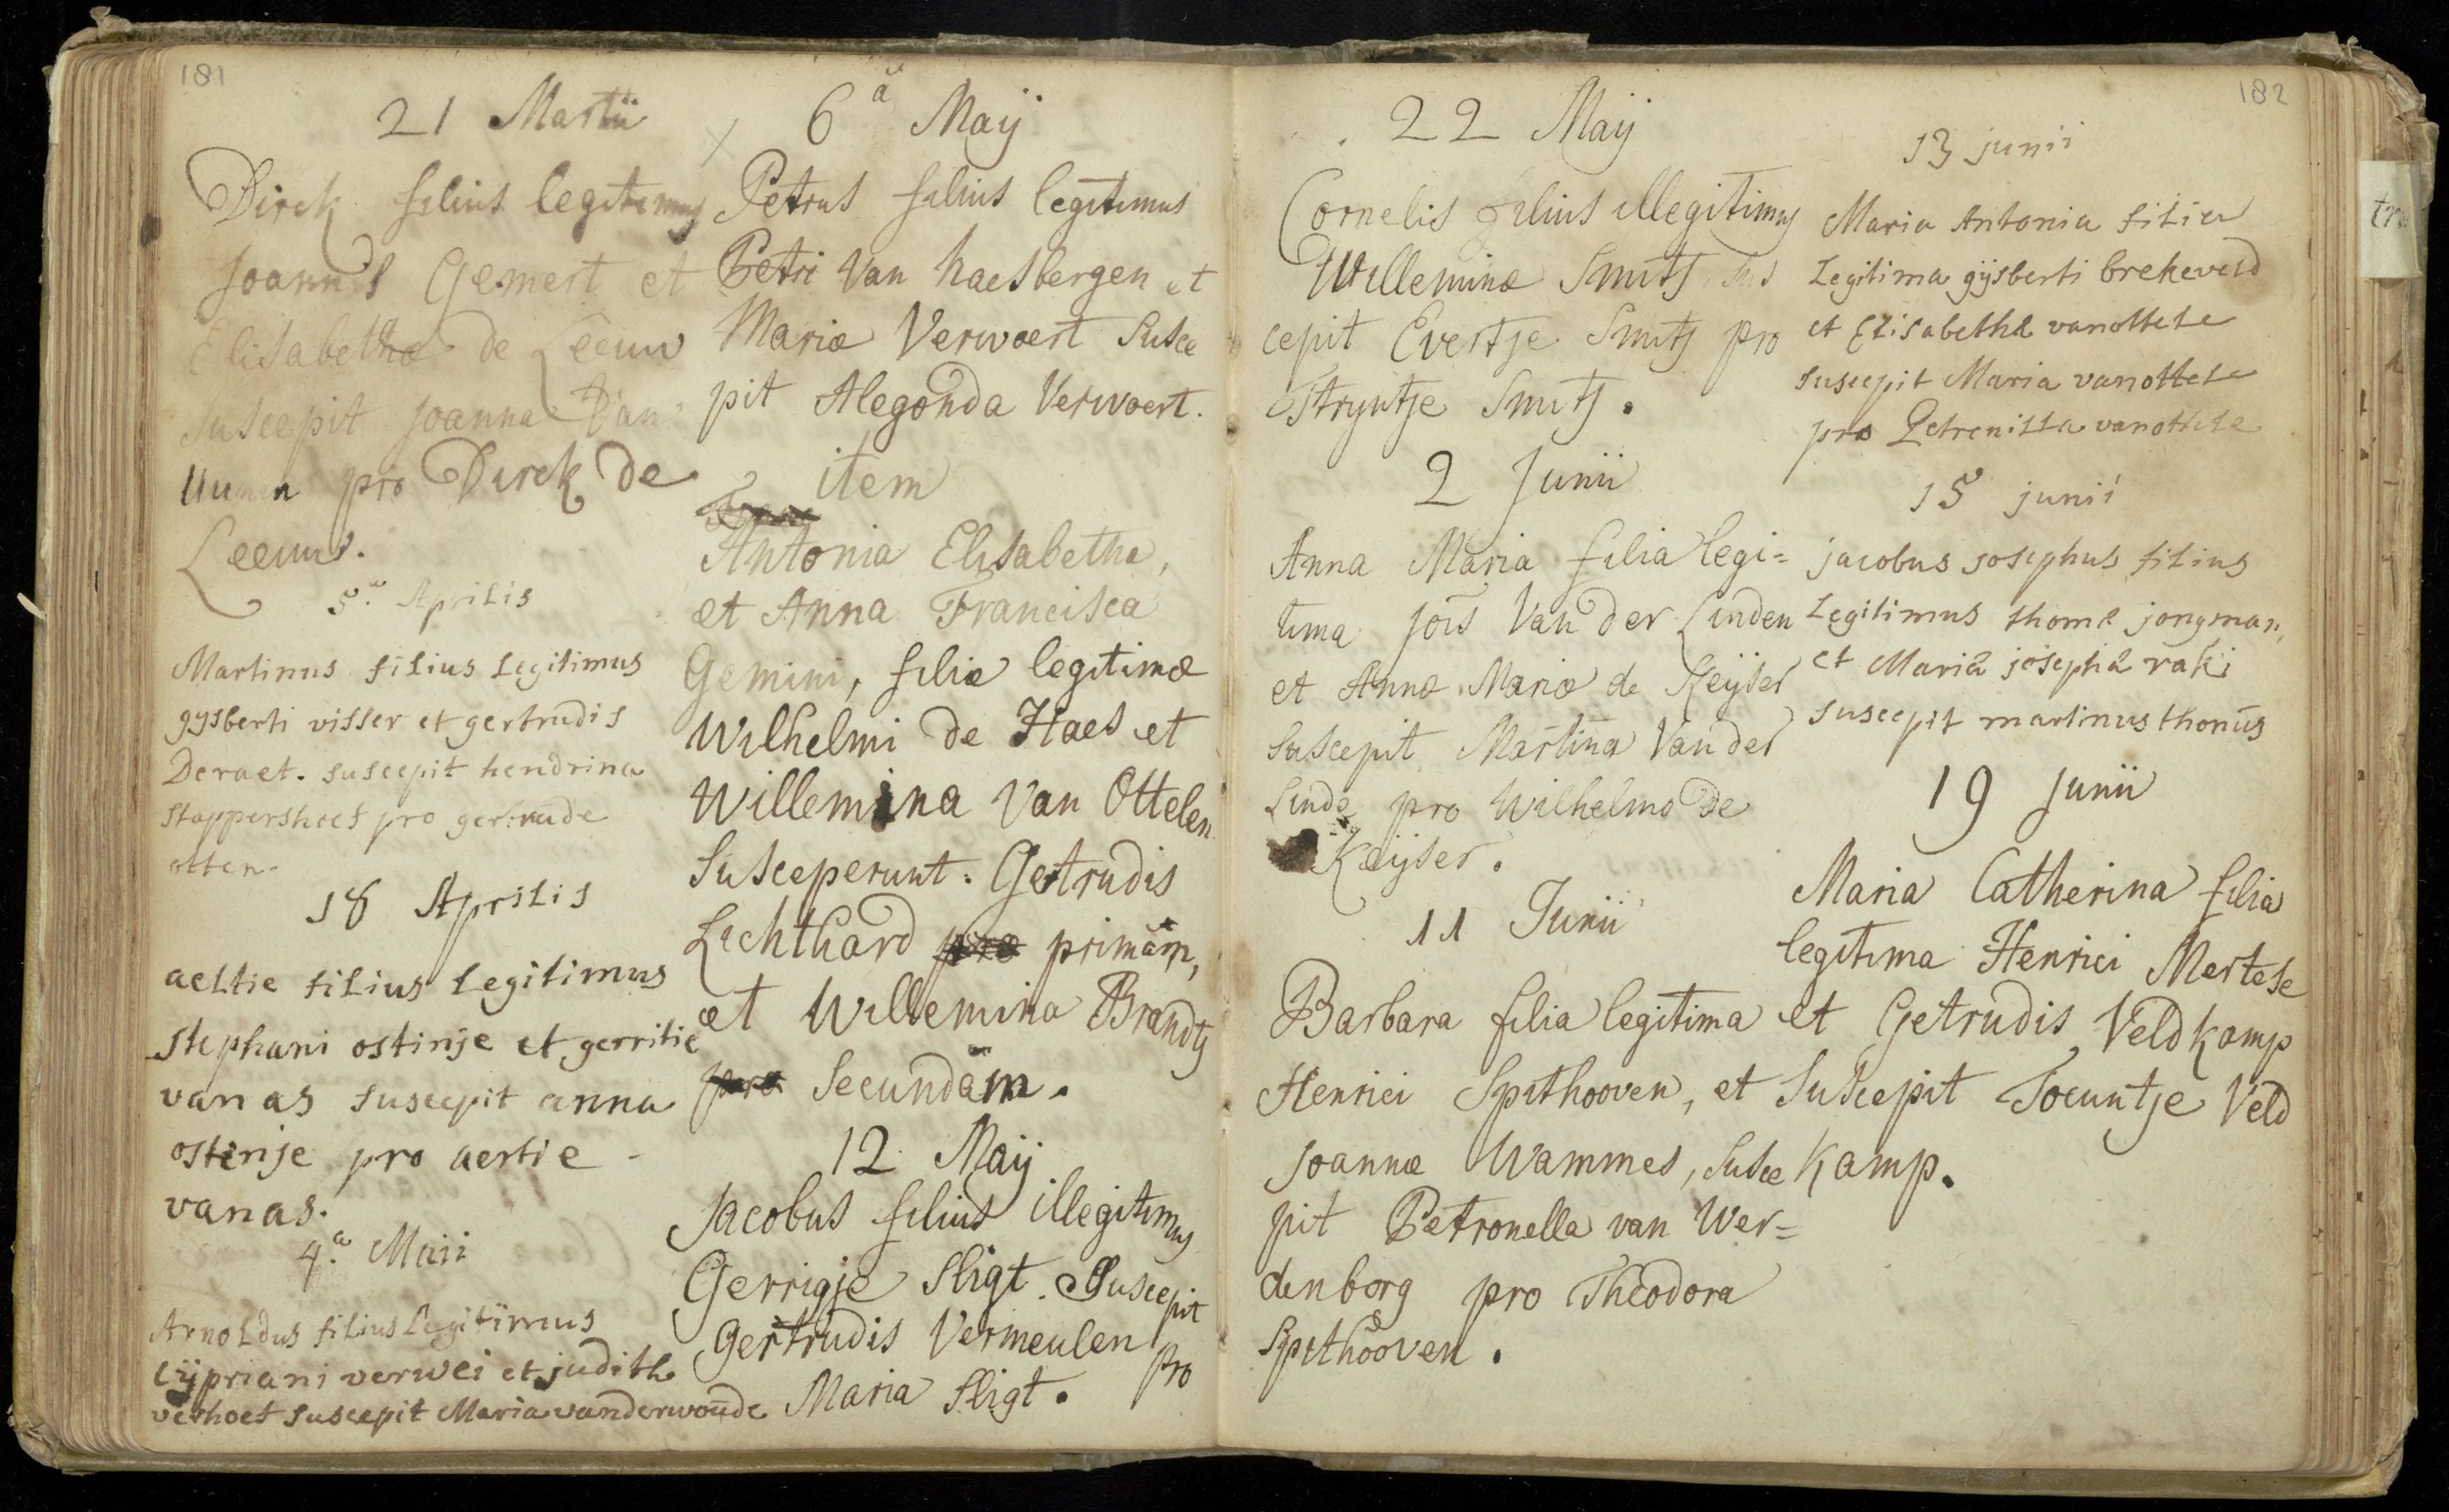 181
21 Martii
Dirck filius legitimus
Joannis Gemert et
Elisabethæ de Leeuw
suscepit Joanna Van
pro Dirck de
Leeuw.
5.a Aprilis
Martinus filius Legitimus
gysberti visser et gertrudis
Deraet. suscepit hendrina
stappershoef pro gertrude
otten.
18 Aprilis
aeltie filius Legitimus
stephani ostinje et gerritie
van as suscepit anna
ostinje pro aertie
van as.
4.a Maii
Arnoldus filius Legitimus
Cijpriani verwei et judith
verhoef suscepit Maria vanderwoude
6a Maij
Petrus filius legitimus
Petri Van haesbergen et
Mariæ Verwoert Susce
pit Alegonda Verwoert.
item
Antonia Elisabetha,
et Anna Francisca
Gemini, filiæ legitimæ
Wilhelmi de Haes et
Willemina Van Ottelen
Susceperunt. Getrudis
Lichthard pro primam,
et Willemina Brandts
pro Secundam.
12 Maij
Jacobus filius illegitimus
Gerrigje Sligt. Suscepit
Gertrudis Vermeulen pro
Maria Sligt.
182
22 Maij
Cornelis filius illegitimus
Willeminæ Smits, sus
cepit Evertje Smits pro
Stryntje Smits.
2 Junii
Anna Maria filia legi=
tima Jois Van der Linden
et Annæ Mariæ de Keijser
Suscepit Martina Van der
Linde pro Wilhelmo de
Keijser.
11 Junii
Barbara filia legitima
Henrici Spithooven, et
Joannæ Wammes, Susce
pit Petronella van Wer=
denborg pro Theodora
Spithooven.
13 junii
Maria Antonia filia
Legitima gijsberti brekeveld
et Elisabetha vanottele
suscepit Maria vanottele
pro vanottele
15 junii
jacobus josephus filius
Legitimus thomæ jongman,
et Mariæ josephæ raki
suscepit martinus thonus
19 Junii
Maria Catherina filia
legitima Henrici Mertese
et Getrudis Veldkamp
Suscepit Toeuntje Veld
Kamp.